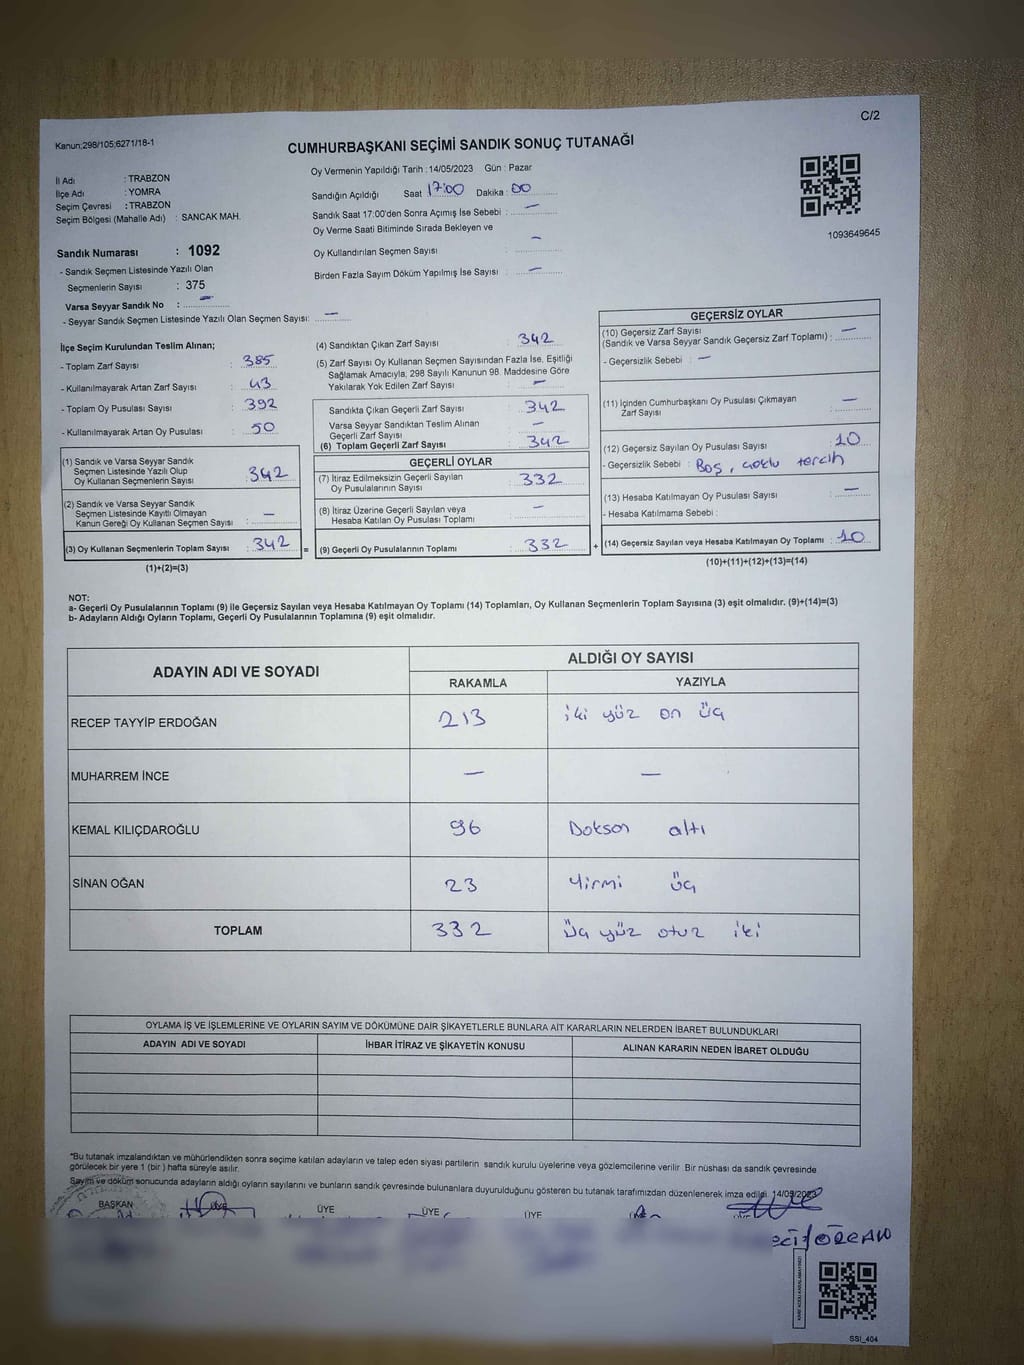 C/2
Kanun;298/105;6271/18-1
CUMHURBAŞKANI SEÇİMİ SANDIK SONUÇ TUTANAĞI
İl Adı : TRABZON
İlçe Adı : YOMRA
Seçim Çevresi : TRABZON
Seçim Bölgesi (Mahalle Adı) : SANCAK MAH.
Sandık Numarası : 1092
- Sandık Seçmen Listesinde Yazılı Olan
Seçmenlerin Sayısı : 375
Varsa Seyyar Sandık No : —
- Seyyar Sandık Seçmen Listesinde Yazılı Olan Seçmen Sayısı: —
Oy Vermenin Yapıldığı Tarih : 14/05/2023 Gün : Pazar
Sandığın Açıldığı Saat 17:00 Dakika : 00
Sandık Saat 17:00'den Sonra Açımış İse Sebebi : —
Oy Verme Saati Bitiminde Sırada Bekleyen ve
Oy Kullandırılan Seçmen Sayısı : —
Birden Fazla Sayım Döküm Yapılmış İse Sayısı : —
1093649645
İlçe Seçim Kurulundan Teslim Alınan;
- Toplam Zarf Sayısı : 385
- Kullanılmayarak Artan Zarf Sayısı : 43
- Toplam Oy Pusulası Sayısı : 392
- Kullanılmayarak Artan Oy Pusulası : 50
(1) Sandık ve Varsa Seyyar Sandık
Seçmen Listesinde Yazılı Olup
Oy Kullanan Seçmenlerin Sayısı : 342
(2) Sandık ve Varsa Seyyar Sandık
Seçmen Listesinde Kayıtlı Olmayan
Kanun Gereği Oy Kullanan Seçmen Sayısı : —
(3) Oy Kullanan Seçmenlerin Toplam Sayısı : 342
(1)+(2)=(3)
(4) Sandıktan Çıkan Zarf Sayısı : 342
(5) Zarf Sayısı Oy Kullanan Seçmen Sayısından Fazla İse, Eşitliği
Sağlamak Amacıyla, 298 Sayılı Kanunun 98. Maddesine Göre
Yakılarak Yok Edilen Zarf Sayısı : —
Sandıkta Çıkan Geçerli Zarf Sayısı : 342
Varsa Seyyar Sandıktan Teslim Alınan
Geçerli Zarf Sayısı : —
(6) Toplam Geçerli Zarf Sayısı : 342
GEÇERLİ OYLAR
(7) İtiraz Edilmeksizin Geçerli Sayılan
Oy Pusulalarının Sayısı : 332
(8) İtiraz Üzerine Geçerli Sayılan veya
Hesaba Katılan Oy Pusulası Toplamı : —
= (9) Geçerli Oy Pusulalarının Toplamı : 332
GEÇERSİZ OYLAR
(10) Geçersiz Zarf Sayısı
(Sandık ve Varsa Seyyar Sandık Geçersiz Zarf Toplamı) : —
- Geçersizlik Sebebi : —
(11) İçinden Cumhurbaşkanı Oy Pusulası Çıkmayan
Zarf Sayısı : —
(12) Geçersiz Sayılan Oy Pusulası Sayısı : 10
- Geçersizlik Sebebi : Boş, çoklu tercih
(13) Hesaba Katılmayan Oy Pusulası Sayısı : —
- Hesaba Katılmama Sebebi :
+ (14) Geçersiz Sayılan veya Hesaba Katılmayan Oy Toplamı : 10
(10)+(11)+(12)+(13)=(14)
NOT:
a- Geçerli Oy Pusulalarının Toplamı (9) ile Geçersiz Sayılan veya Hesaba Katılmayan Oy Toplamı (14) Toplamları, Oy Kullanan Seçmenlerin Toplam Sayısına (3) eşit olmalıdır. (9)+(14)=(3)
b- Adayların Aldığı Oyların Toplamı, Geçerli Oy Pusulalarının Toplamına (9) eşit olmalıdır.
ADAYIN ADI VE SOYADI ALDIĞI OY SAYISI
RAKAMLA YAZIYLA
RECEP TAYYİP ERDOĞAN 213 iki yüz on üç
MUHARREM İNCE — —
KEMAL KILIÇDAROĞLU 96 Doksan altı
SİNAN OĞAN 23 Yirmi üç
TOPLAM 332 üç yüz otuz iki
OYLAMA İŞ VE İŞLEMLERİNE VE OYLARIN SAYIM VE DÖKÜMÜNE DAİR ŞİKAYETLERLE BUNLARA AİT KARARLARIN NELERDEN İBARET BULUNDUKLARI
ADAYIN ADI VE SOYADI İHBAR İTİRAZ VE ŞİKAYETİN KONUSU ALINAN KARARIN NEDEN İBARET OLDUĞU
*Bu tutanak imzalandıktan ve mühürlendikten sonra seçime katılan adayların ve talep eden siyasi partilerin sandık kurulu üyelerine veya gözlemcilerine verilir. Bir nüshası da sandık çevresinde
görülecek bir yere 1 (bir) hafta süreyle asılır.
Sayım ve döküm sonucunda adayların aldığı oyların sayılarını ve bunların sandık çevresinde bulunanlara duyurulduğunu gösteren bu tutanak tarafımızdan düzenlenerek imza edildi. 14/05/2023
BAŞKAN ÜYE ÜYE ÜYE ÜYE
SSI_404